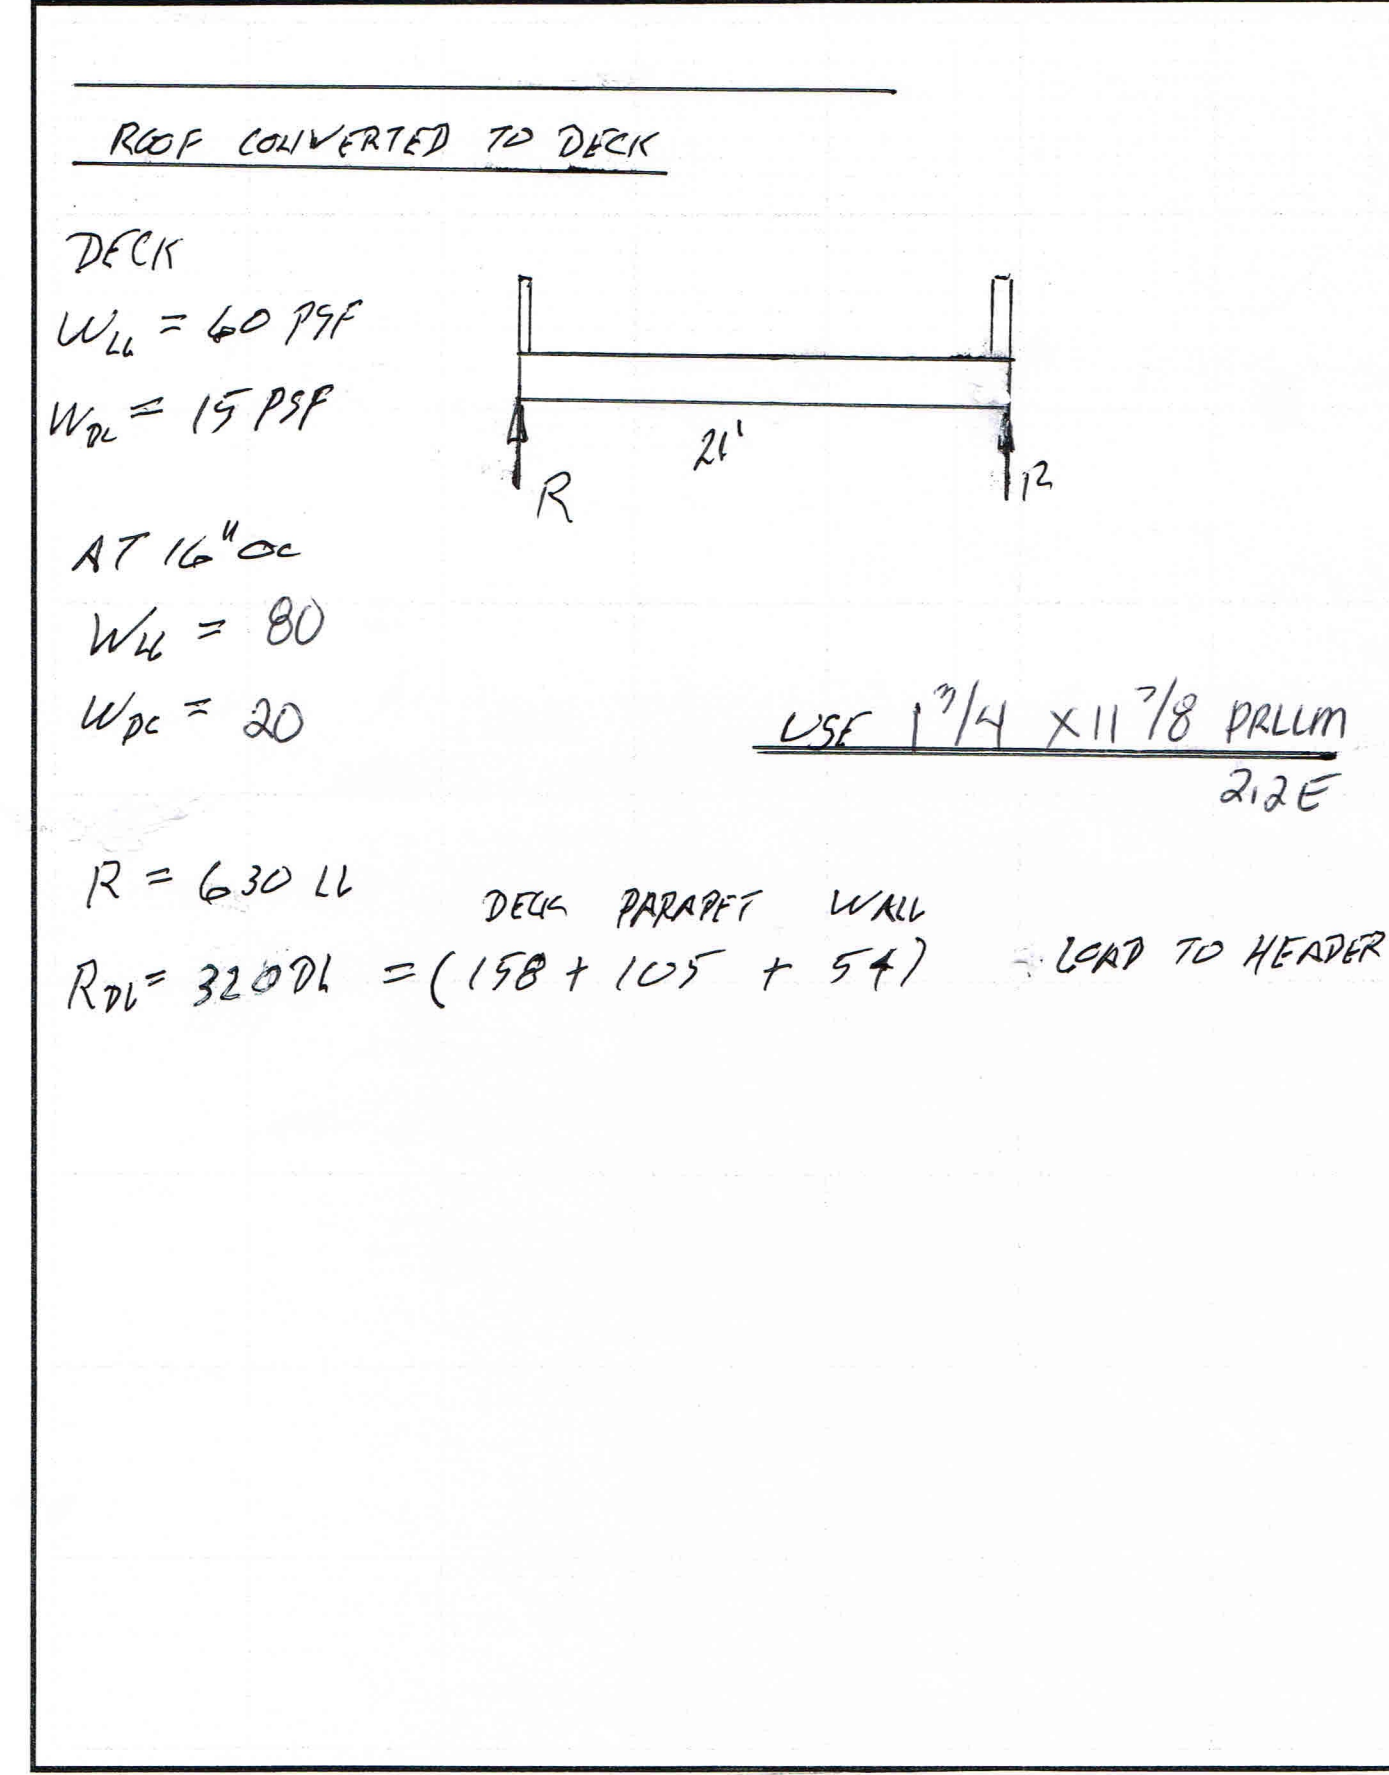 ROOF CONVERTED TO DECK
DECK
W_LL = 60 PSF
W_DL = 15 PSF
21'
R
R
AT 16" OC
W_LL = 80
W_DL = 20
USE 1 3/4 X 11 7/8 PRLLM
2.2E
R = 630 LL
DECK PARAPET WALL
R_DL = 320 DL = (158 + 105 + 54) LOAD TO HEADER